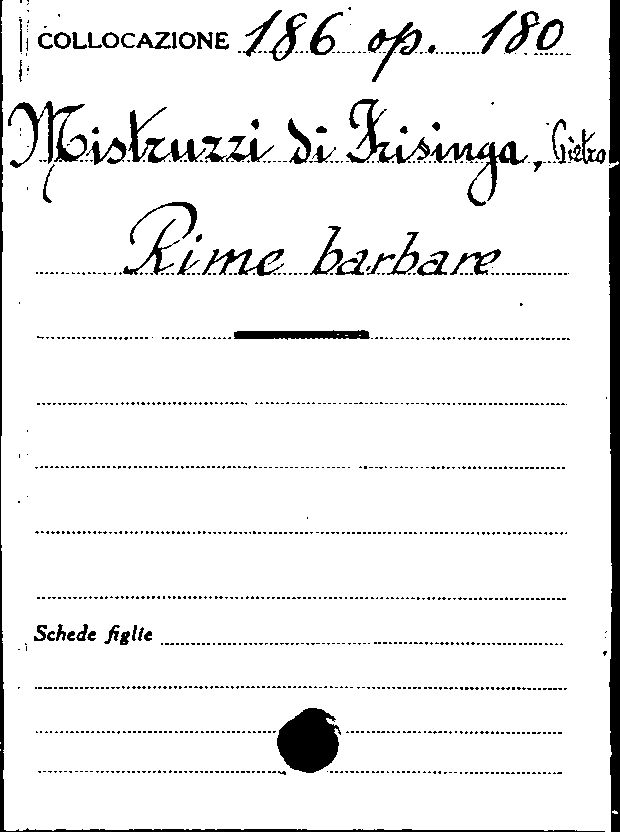 COLLOCAZIONE 186 op. 180
Mistruzzi di Frisinga, Pietro
Rime barbare
Schede figlie